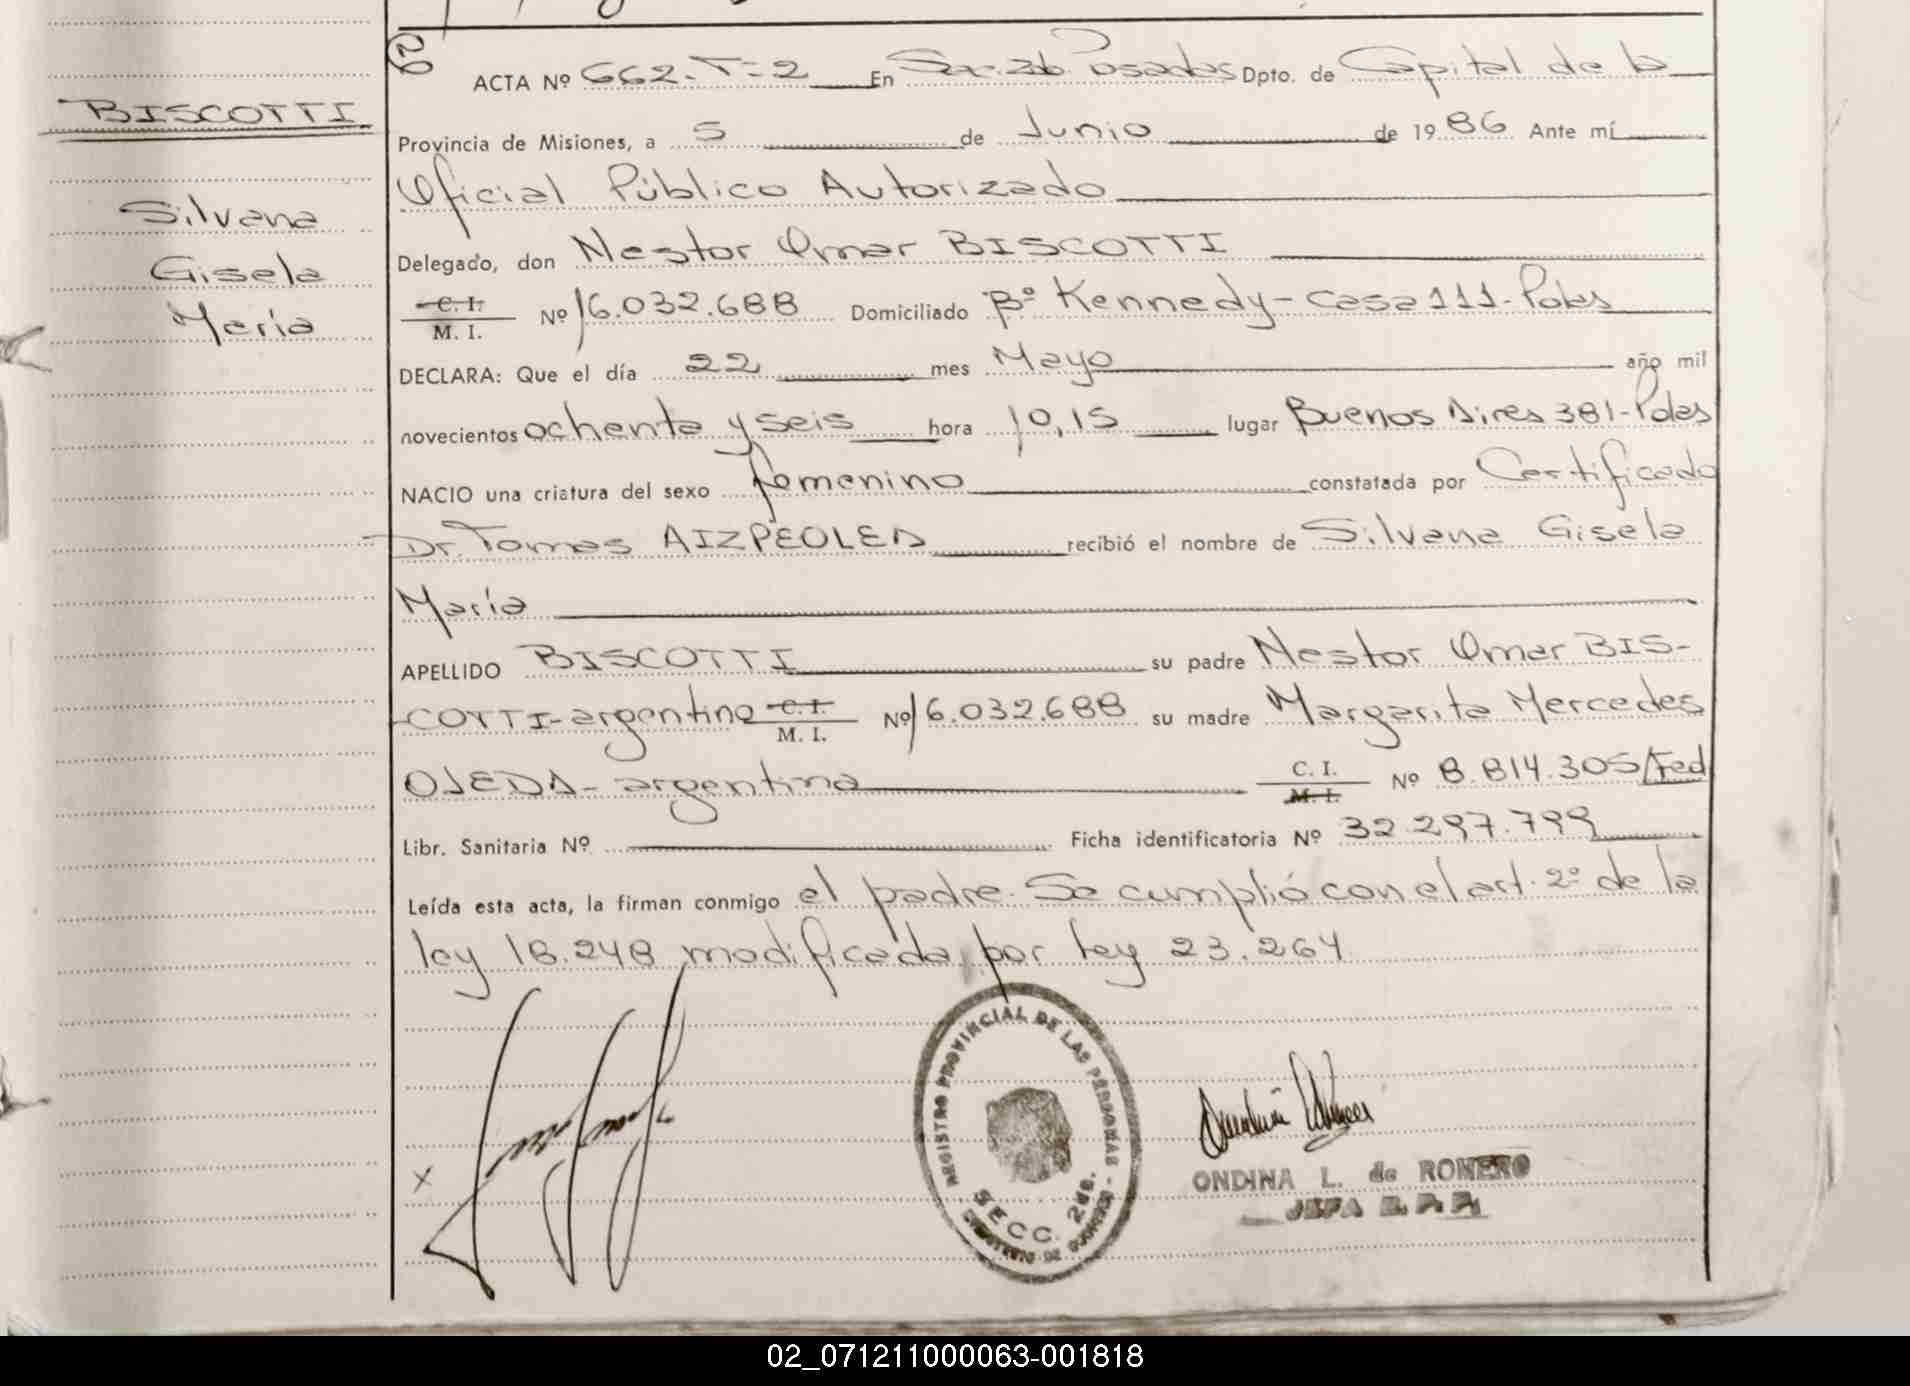 BISCOTTI
Silvana
Gisela
María
ACTA Nº 662-T=2 En Sec. 2ª Posadas Dpto. de Capital de la
Provincia de Misiones, a 5 de Junio de 1986 Ante mí
Oficial Público Autorizado
Delegado, don Nestor Omar BISCOTTI
C. I.
M. I. Nº 16.032.688 Domiciliado Bº Kennedy-casa 111-Pdas
DECLARA: Que el día 22 mes Mayo año mil
novecientos ochenta y seis hora 10,15 lugar Buenos Aires 381-Pdas
NACIO una criatura del sexo femenino constatada por Certificado
Dr. Tomas AIZPEOLEA recibió el nombre de Silvana Gisela
María
APELLIDO BISCOTTI su padre Nestor Omar BIS-
COTTI-argentino C. I. M. I. Nº 16.032.688 su madre Margarita Mercedes
OJEDA-argentina C. I. M. I. Nº 8.814.305/Fed
Libr. Sanitaria Nº Ficha identificatoria Nº 32.297.799
Leída esta acta, la firman conmigo el padre. Se cumplió con el art. 2º de la
ley 18.248 modificada por ley 23.264
REGISTRO PROVINCIAL DE LAS PERSONAS
SECC. 2da.
MINISTERIO DE GOBIERNO
X
ONDINA L. de ROMERO
JEFA
02_071211000063-001818